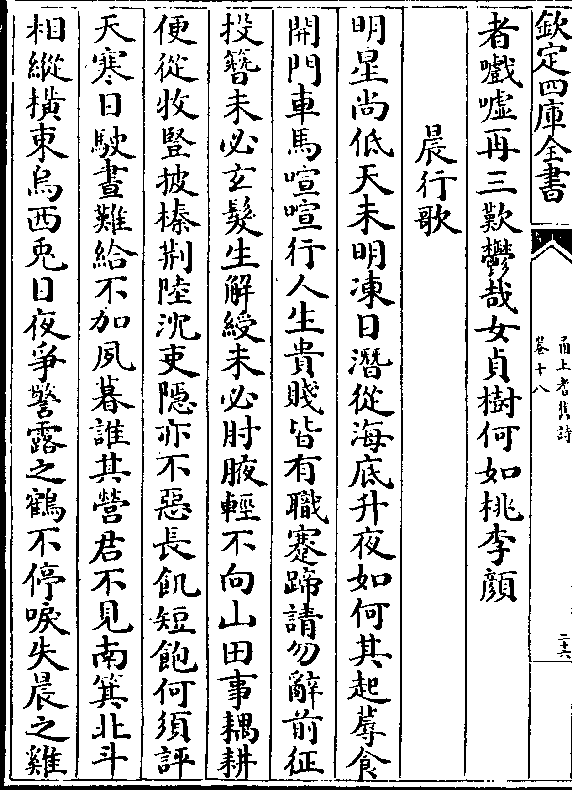 欽定四庫全書
甬上耆舊詩
卷十八
二六
者嚱嘘再三歎鬱哉女貞樹何如桃李顔
晨行歌
明星尚低天未明凍日潛從海底升夜如何其起蓐食
開門車馬喧喧行人生貴賤皆有職蹇蹄請勿辭前征
投簪未必玄髮生解綬未必肘腋輕不向山田事耦耕
便從牧豎披榛荆陸沈吏隱亦不惡長飢短飽何須評
天寒日駛晝難給不加夙暮誰其營君不見南箕北斗
相縱横東烏西兎日夜爭警露之鶴不停唳失晨之雞